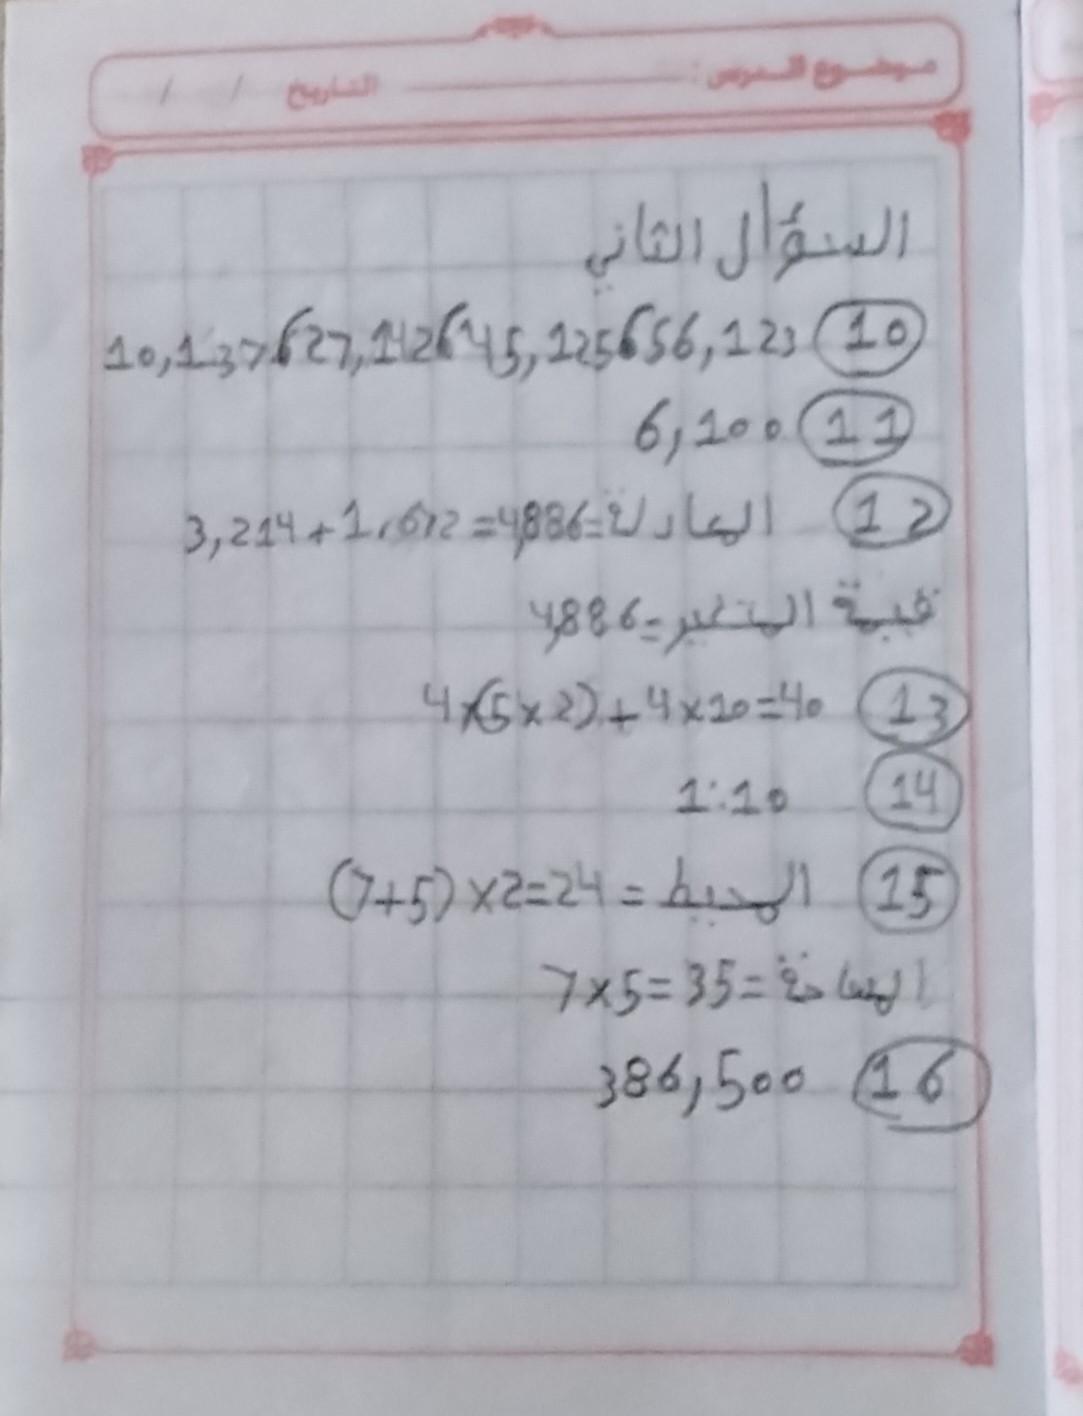 موضوع الدرس : التاريخ / /
السؤال الثاني
10 56,123 ، 45,125 ، 27,142 ، 10,137
11 6,100
12 المعادلة = 3,214 + 1,672 = 4,886
قيمة المتغير = 4,886
13 4×(5×2) + 4×10=40
14 1:10
15 المحيط = (7+5)×2=24
المساحة = 7×5=35
16 386,500